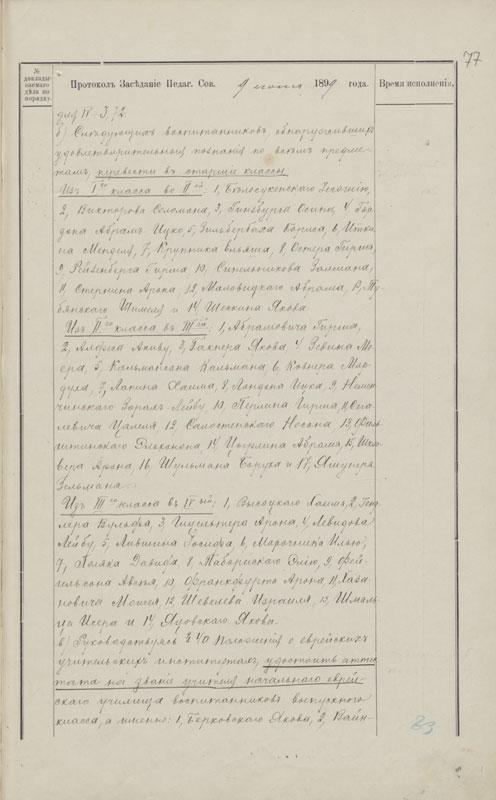 77
№ докладываемаго дѣла по порядку.
Протоколъ Засѣданіе Педаг. Сов. 9 іюня 1899 года.
Время исполненія.
для IV - 3,72.
б) Слѣдующихъ воспитанниковъ, обнаружившихъ
удовлетворительныя познанія по всѣмъ предме-
тамъ, перевести въ старшіе классы
Изъ I го класса во II ой: 1, Бѣлосукенскаго
2, Викторова Соломона, 3, Гинзбурга Осипа, 4, Гор-
дона Абрама Ицко, 5, Зильберваха Бориса, 6, Иткина
на Менделя, 7, Крупника Ельяша, 8, Остера Гирша,
9, Рейзенберга Гирша, 10, Синельникова Залмана,
11, Стернина Арона, 12, Маловицкаго Абрама, 13, Ту-
бянскаго Шимеля и 14, Шескина Якова.
Изъ II го класса въ III ій: 1, Абрамовича Гирша,
2, Акиву, 3, Гахнера Якова, 4, Зевина Мо-
5, Кальмансона Кальмана, 6, Ковнера Мор-
духа, 7, Лапина Хаима, 8, Лондона Ицка, 9, Немен-
чинскаго Лейбу, 10, Перлина Гирша, 11,
левича Цалеля 12, Носона, 13,
штинскаго Эльханона, 14, Цырлина Абрама, 15,
вера Арона, 16, Шульмана Боруха и 17,
Зельмана.
Изъ III го класса въ IV ый: 1, Высоцкаго Хаима, 2,
лера Вульфа, 3, Арона, 4, Левидова
Лейбу, 5, Лившина Іосифа, 6, Марочника Илью,
7, Поляка Давида, 8, 9, Фей-
гельсона 10, Франкфурта Арона, 11, Хаза-
новича Моисея, 12, Шевелева Израиля, 13, Шмаль-
ца Исера и 14, Яловскаго Якова.
в) Руководствуясь § 40 Положенія о еврейскихъ
учительскихъ институтахъ, удостоить аттес-
тата на званіе учителя начальнаго еврей-
скаго училища воспитанниковъ выпускного
класса, а именно: 1, Берковскаго Якова, 2, Вайн-
23